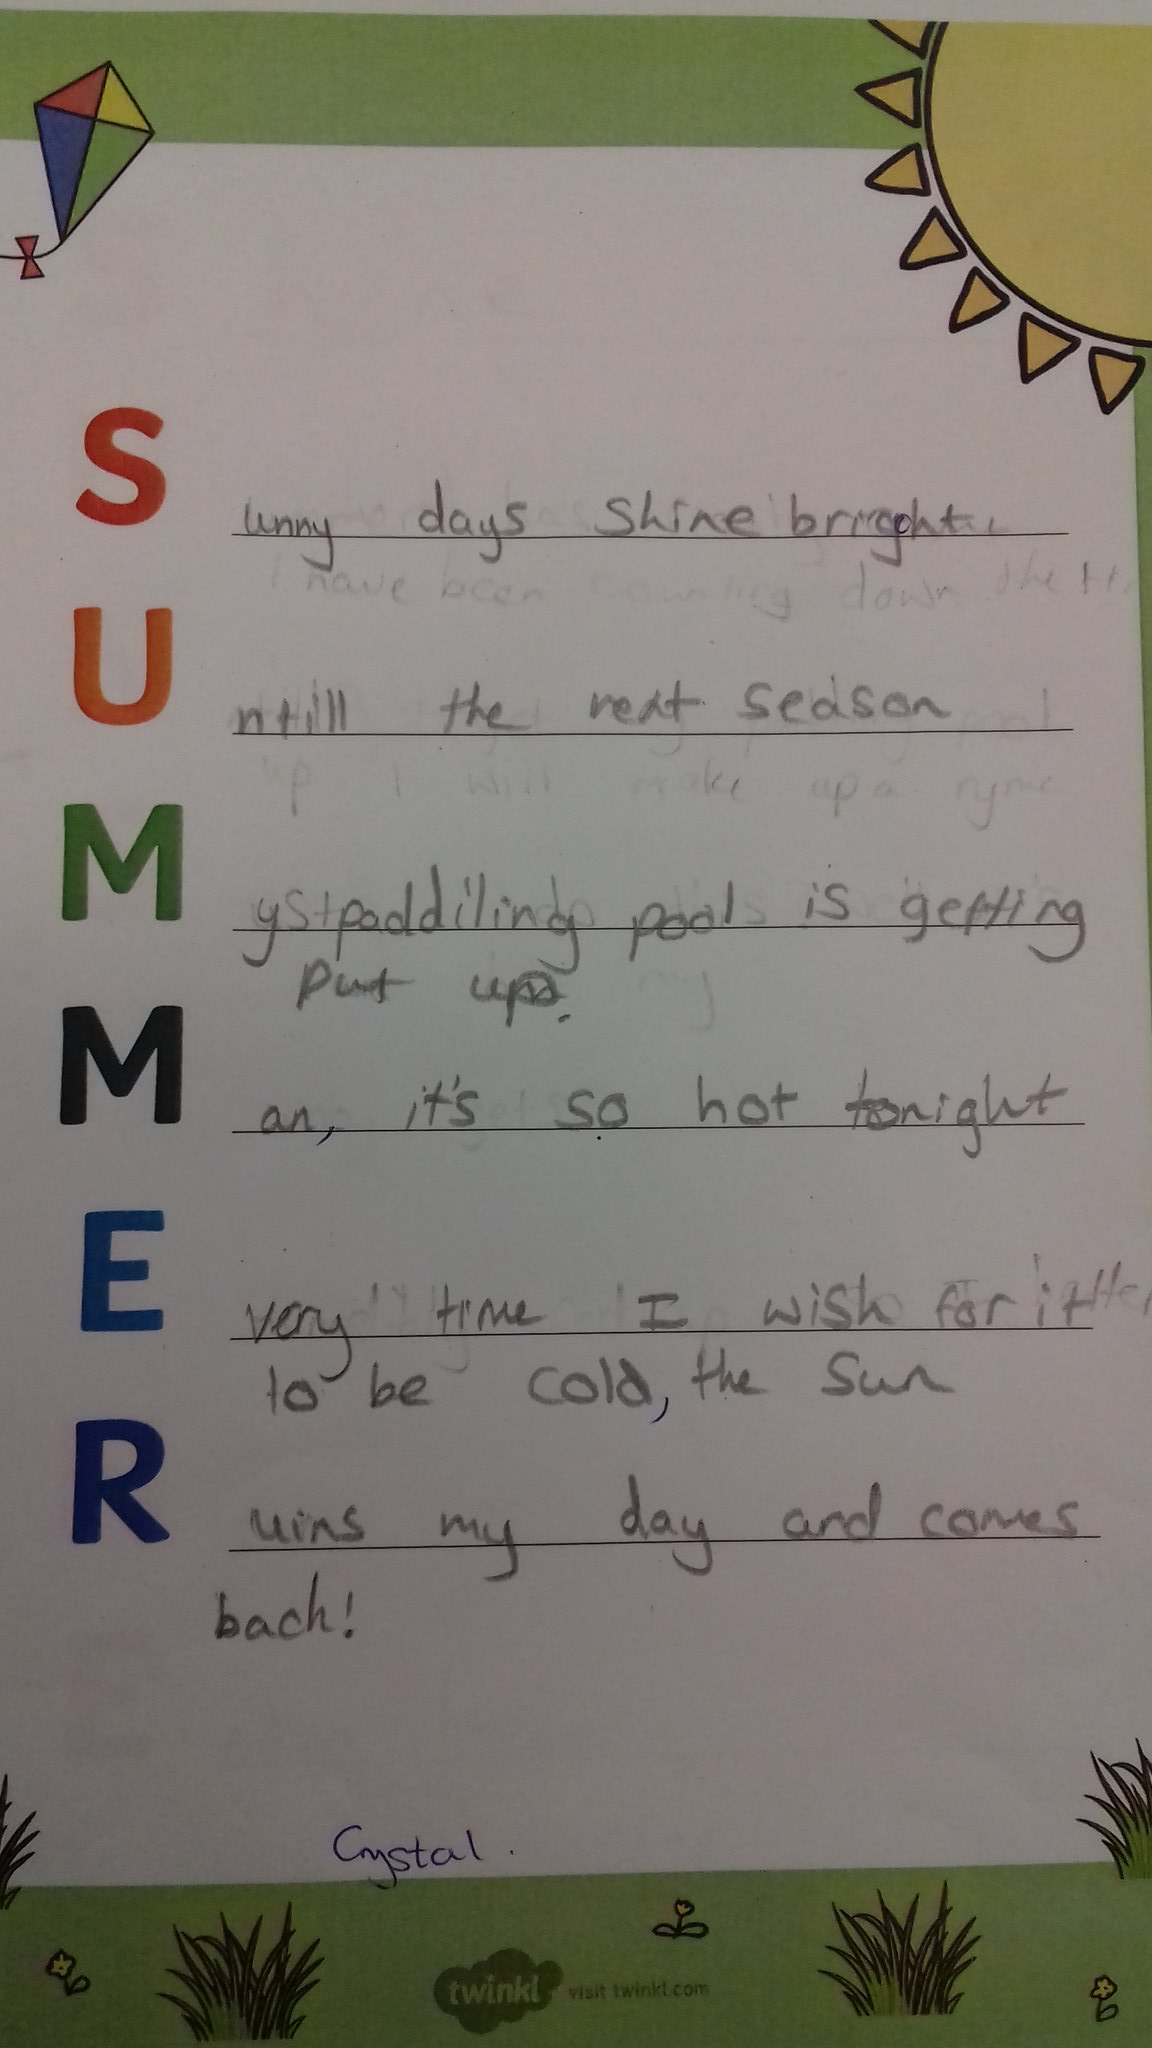 Sunny days shine bright.
Untill the next season
My paddiling pool is getting
put up.
Man, it's so hot tonight
Every time I wish for it
to be cold, the sun
Ruins my day and comes
back!
Crystal.
twinkl visit twinkl.com